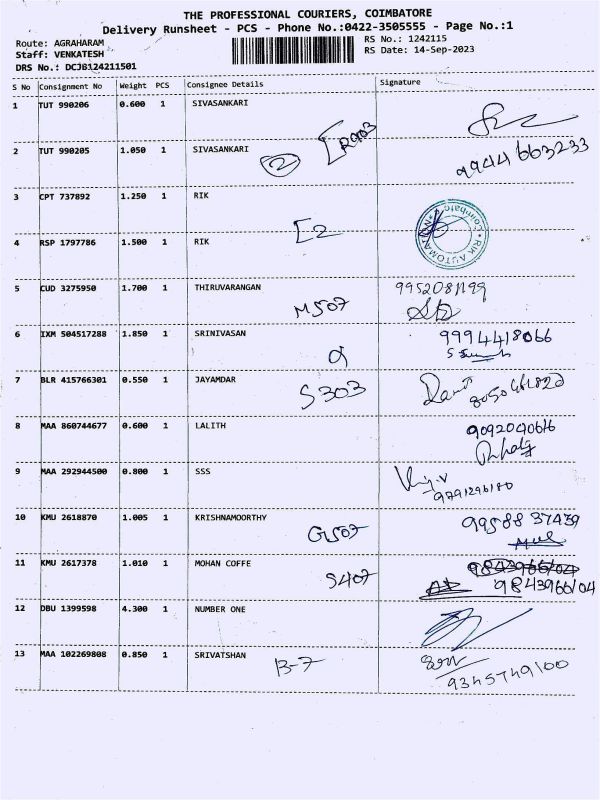 THE PROFESSIONAL COURIERS, COIMBATORE
Delivery Runsheet - PCS - Phone No.:0422-3505555 - Page No.:1
Route: AGRAHARAM
RS No.: 1242115
Staff: VENKATESH
RS Date: 14-Sep-2023
DRS No.: DCJB124211501
S No Consignment No Weight PCS Consignee Details Signature
1 TUT 990206 0.600 1 SIVASANKARI
R903
2 TUT 990205 1.050 1 SIVASANKARI
2
9944663233
3 CPT 737892 1.250 1 RIK
[2
RIK AUTOMA
Coimbato
4 RSP 1797786 1.500 1 RIK
5 CUD 3275950 1.700 1 THIRUVARANGAN
M507
9952081199
6 IXM 504517288 1.850 1 SRINIVASAN
9994418066
7 BLR 415766301 0.550 1 JAYAMDAR
S303
8 MAA 860744677 0.600 1 LALITH
9092040616
9 MAA 292944500 0.800 1 SSS
9791296180
10 KMU 2618870 1.005 1 KRISHNAMOORTHY
G507
99588 37439
11 KMU 2617378 1.010 1 MOHAN COFFE
S407
9843966104
9843966104
12 DBU 1399598 4.300 1 NUMBER ONE
13 MAA 102269808 0.850 1 SRIVATSHAN
B-7
9345749100